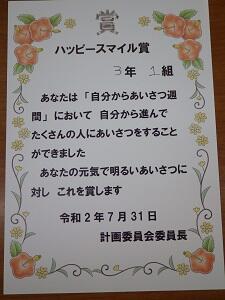 賞
ハッピースマイル賞
3年 1組
あなたは「自分からあいさつ週
間」において 自分から進んで
たくさんの人にあいさつをすること
ができました
あなたの元気で明るいあいさつに
対し これを賞します
令和2年7月31日
計画委員会委員長